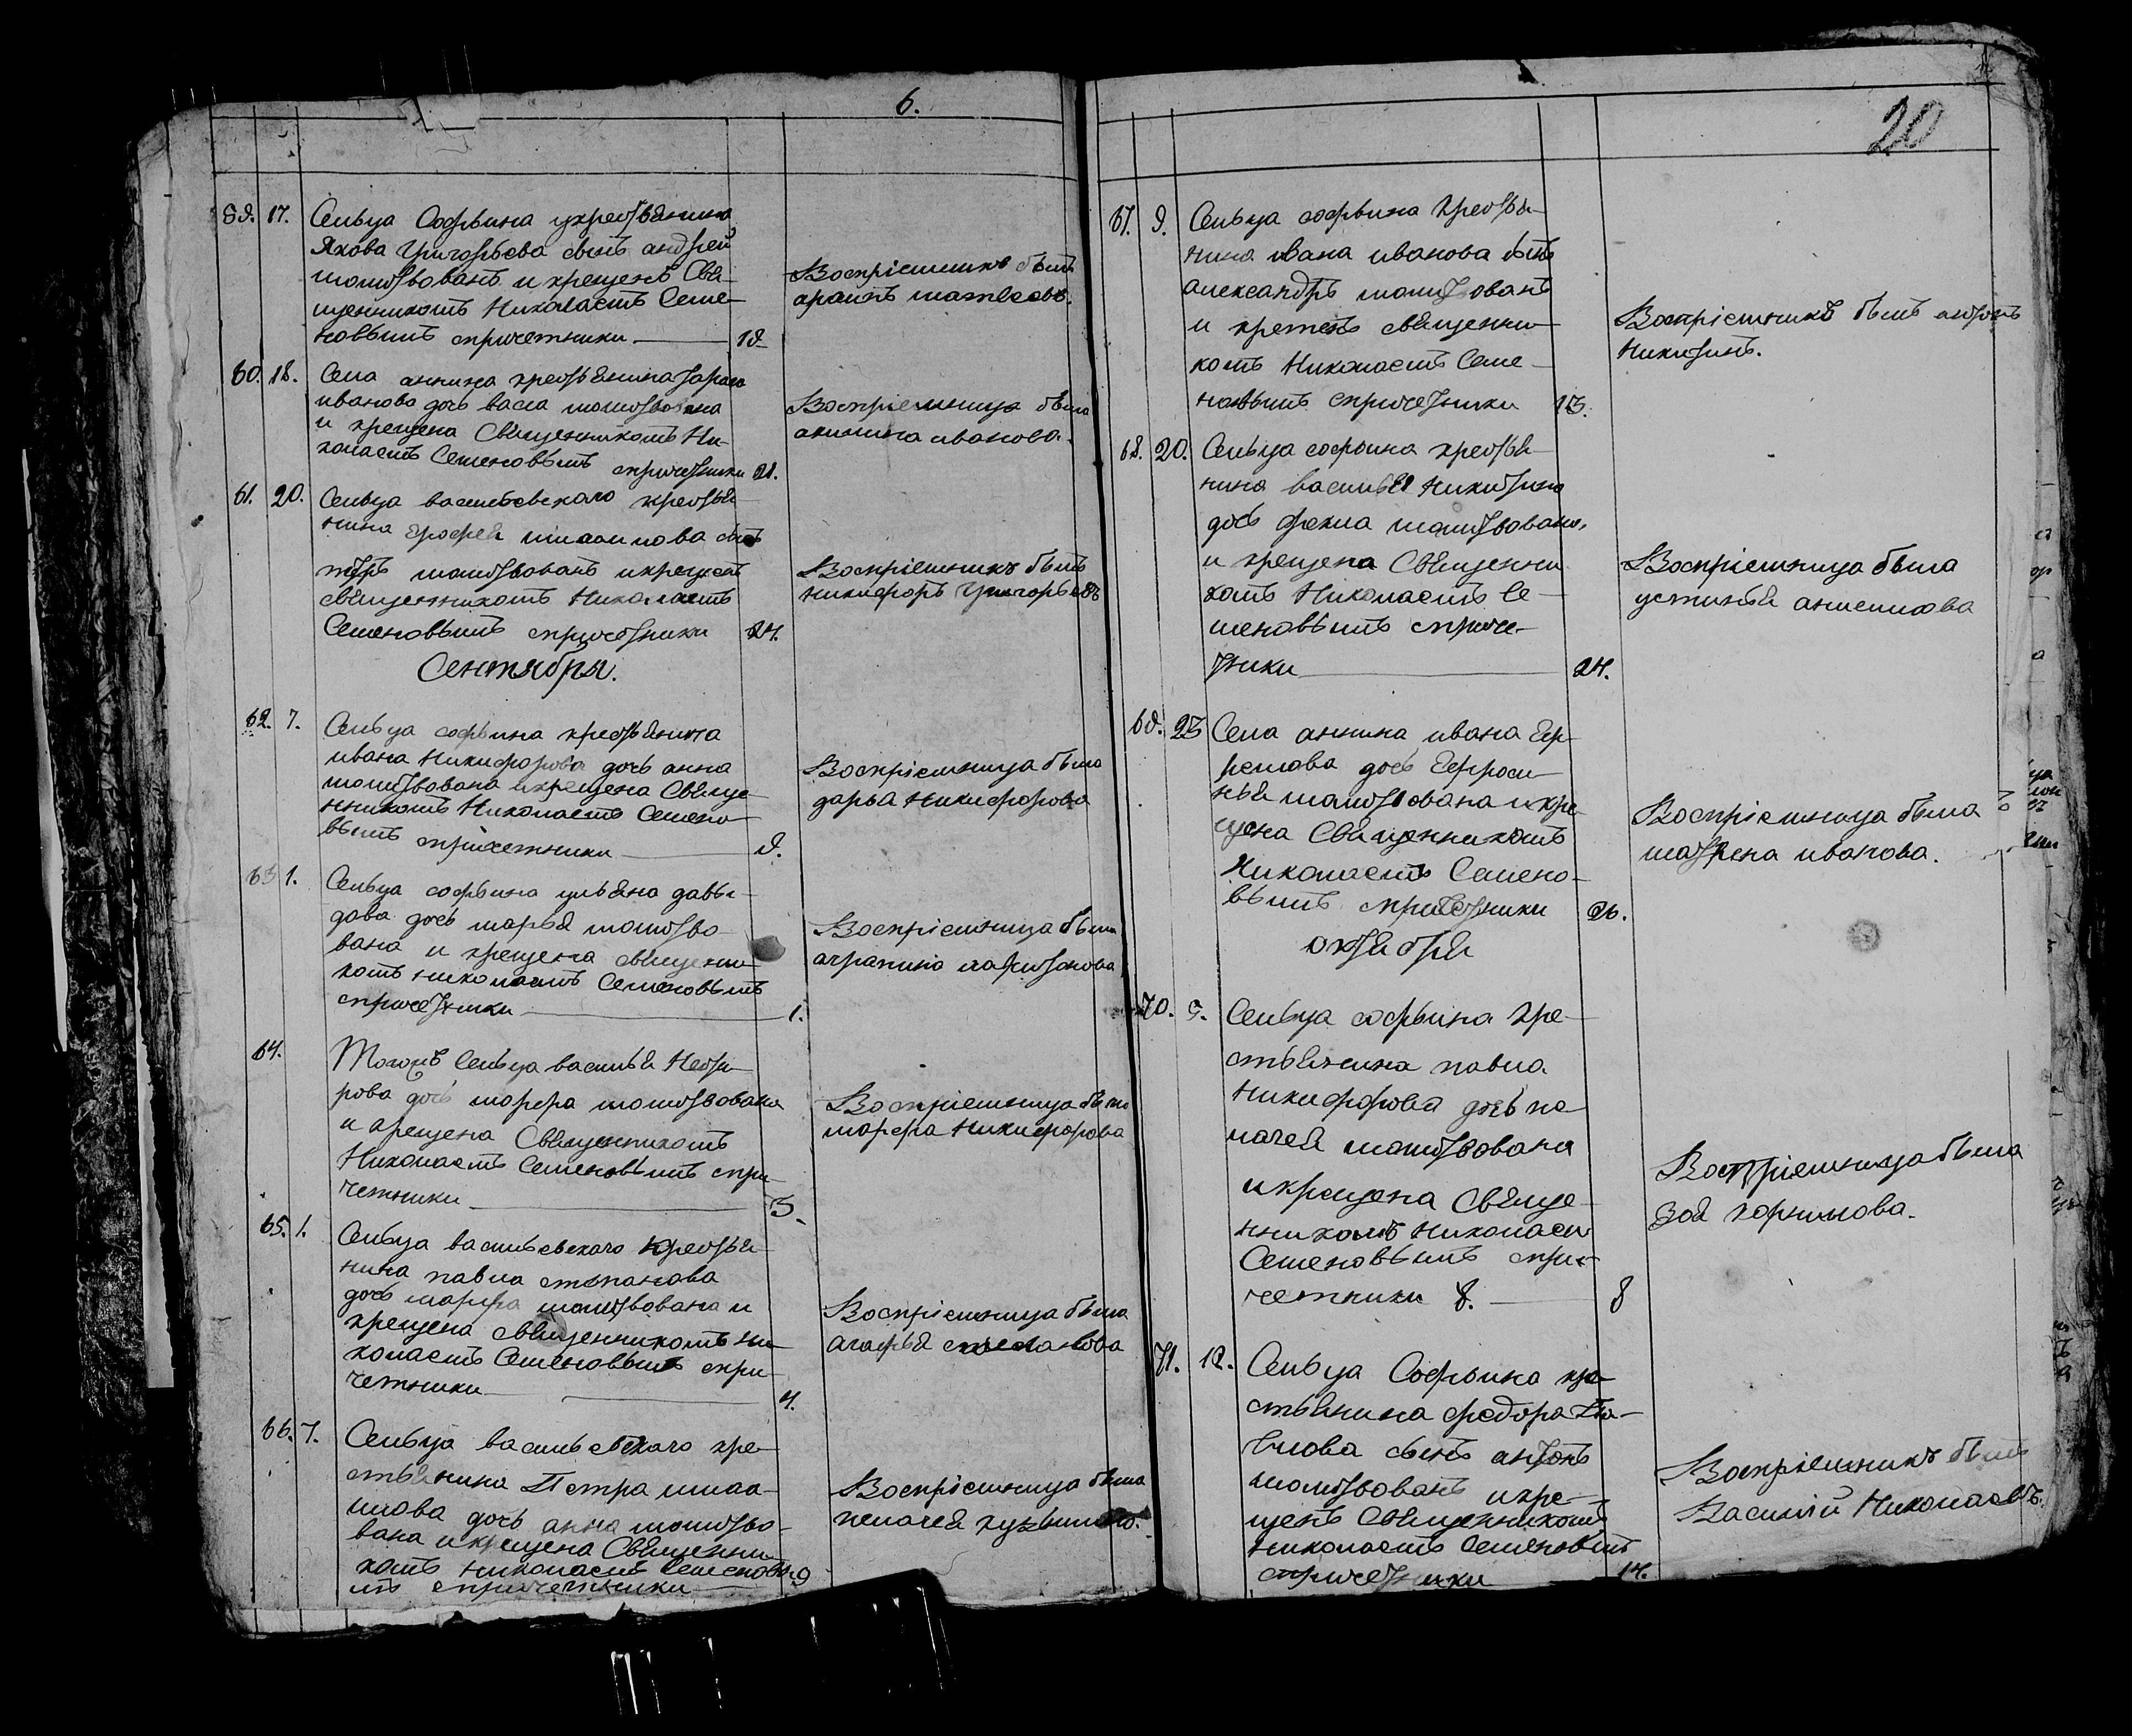 6.
59. 17. Сельца Софьина укрестьянина
Якова Григорьева сынъ андрей
молитвованъ и крещенъ Свя-
щенникомъ Николаемъ Семе-
новымъ спричетники 19
Воспріемникъ былъ
матвеевъ.
60. 18. Села аннина крестьянина
иванова дочь васса молитвована
и крещена Священникомъ Ни-
колаемъ Семеновымъ спричетники 21.
Воспріемница была
акилина иванова.
61. 20. Сельца васильевскаго крестья-
нина ерофея сынъ
петръ молитвованъ икрещенъ
священникомъ Николаемъ
Семеновымъ спричетники 24.
Воспріемникъ былъ
никифоръ Григорьевъ
Сентября.
62. 7. Сельца софьина крестьянина
ивана Никифорова дочь анна
молитвована икрещена Священ-
нникомъ Николаемъ Семено-
вымъ спричетники 9.
Воспріемница была
дарья Никифорова
63 1. Сельца софьина ульяна давы-
дова дочь марья молитво-
вана и крещена священни-
комъ николаемъ Семеновымъ
спричетники 1.
Воспріемница была
аграпина харитонова
64. Тогожъ Сельца василья
дочь марфа молитвована
и крещена Священникомъ
Николаемъ Семеновымъ спри-
четники 3.
Воспріемница была
марфа Никифорова
65. 1. Сельца васильевскаго крестья-
нина павла степанова
дочь марфа молитвована и
крещена священникомъ ни-
колаемъ Семеновымъ спри-
четники 4.
Воспріемница была
агафья степанова
66. 7. Сельца васильевскаго кре-
стьянина Петра
дочь анна молитво-
вана икрещена Священни-
комъ николаемъ Семеновы-
мъ спричетники 9
Воспріемница была
пелагея
20
67. 9. Сельца софьина крестья-
нина ивана иванова сынъ
александръ молитвованъ
и крещенъ священни-
комъ Николаемъ Семе-
новымъ спричетники 13.
Воспріемникъ былъ антонъ
Никитинъ.
68. 20. Сельца софьина крестья-
нина василья Никитина
дочь фекла молитвована,
и крещена Священни
комъ Николаемъ Се-
меновымъ сприче-
тники 24.
Воспріемница была
устинья
69. 23 Села аннина ивана Еф-
ремова дочь Ефроси-
нья молитвована и кре
щена Священникомъ
Николаемъ Семено-
вымъ спричетники 26.
Воспріемница была
матрена иванова.
октября
70. 5. Сельца софьина кре-
стьянина павла
Никифорова дочь пе-
лагея молитвована
икрещена Свяще-
нникомъ Николаем
Семеновымъ спри-
четники 8. 8
Воспріемница была
Зоя корнилова.
71. 12. Сельца Софьина кре-
стьянина федора Па-
влова сынъ антонъ
молитвованъ икре-
щенъ Священникомъ
николаемъ Семеновымъ
спричетники 14.
Воспріемникъ былъ
Василій Николаевъ.